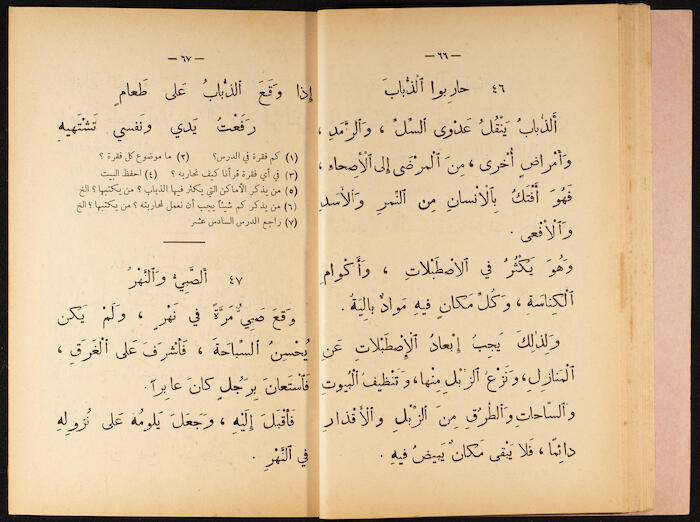 — ٦٦ —
٤٦ حارِبوا ٱلذُّبابَ
أَلذُّبابُ يَنْقُلُ عَدْوَى السِّلِّ ، وَالرَّمَدِ ،
وَأَمْراضٍ أُخْرى ، مِنَ ٱلْمَرْضَى إِلَى ٱلْأَصِحَّاءِ ،
فَهُوَ أَفْتَكُ بِٱلْأَنْسانِ مِنَ ٱلنَّمِرِ وَٱلْأَسَدِ
وَٱلْأَفْعى .
وَهُوَ يَكْثُرُ في ٱلْأَصْطَبْلاتِ ، وَأَكْوامِ
ٱلْكُناسَةِ ، وَكُلِّ مَكانٍ فيهِ مَوادُّ بالِيَةٌ .
وَلِذٰلِكَ يَجِبُ إِبْعادُ ٱلْإِصْطَبْلاتِ عَنِ
ٱلْمَنازِلِ ، وَنَزْعُ ٱلزِّبْلِ مِنْها ، وَتَنْظيفُ ٱلْبُيوتِ
وَٱلسَّاحاتِ وَٱلطُّرُقِ مِنَ ٱلزِّبْلِ وَٱلْأَقْذارِ
دائِمًا ، فَلا يَبْقى مَكانٌ يَبيضُ فيهِ .
— ٦٧ —
إِذا وَقَعَ ٱلذُّبابُ عَلى طَعامٍ
رَفَعْتُ يَدي وَنَفْسي تَشْتَهيهِ
(١) كم فقرة في الدرس؟ (٢) ما موضوع كل فقرة ؟
(٣) في أي فقرة قرأنا كيف نحاربه ؟ (٤) احفظ البيت
(٥) من يذكر الأماكن التي يكثر فيها الذباب ؟ من يكتبها ؟ الخ
(٦) من يذكر كم شيئاً يجب أن نعمل لمحاربته ؟ من يكتبها ؟ الخ
(٧) راجع الدرس السادس عشر
٤٧ ٱلصَّبِيُّ وَٱلنَّهْرُ
وَقَعَ صَبِيٌّ مَرَّةً في نَهْرٍ ، وَلَمْ يَكُنْ
يُحْسِنُ ٱلسِّباحَةَ ، فَأَشْرَفَ عَلَى ٱلْغَرَقِ ،
فَٱسْتَعانَ بِرَجُلٍ كانَ عابِراً .
فَأَقْبَلَ إِلَيْهِ ، وَجَعَلَ يَلومُهُ عَلى نُزولِهِ
في ٱلنَّهْرِ .